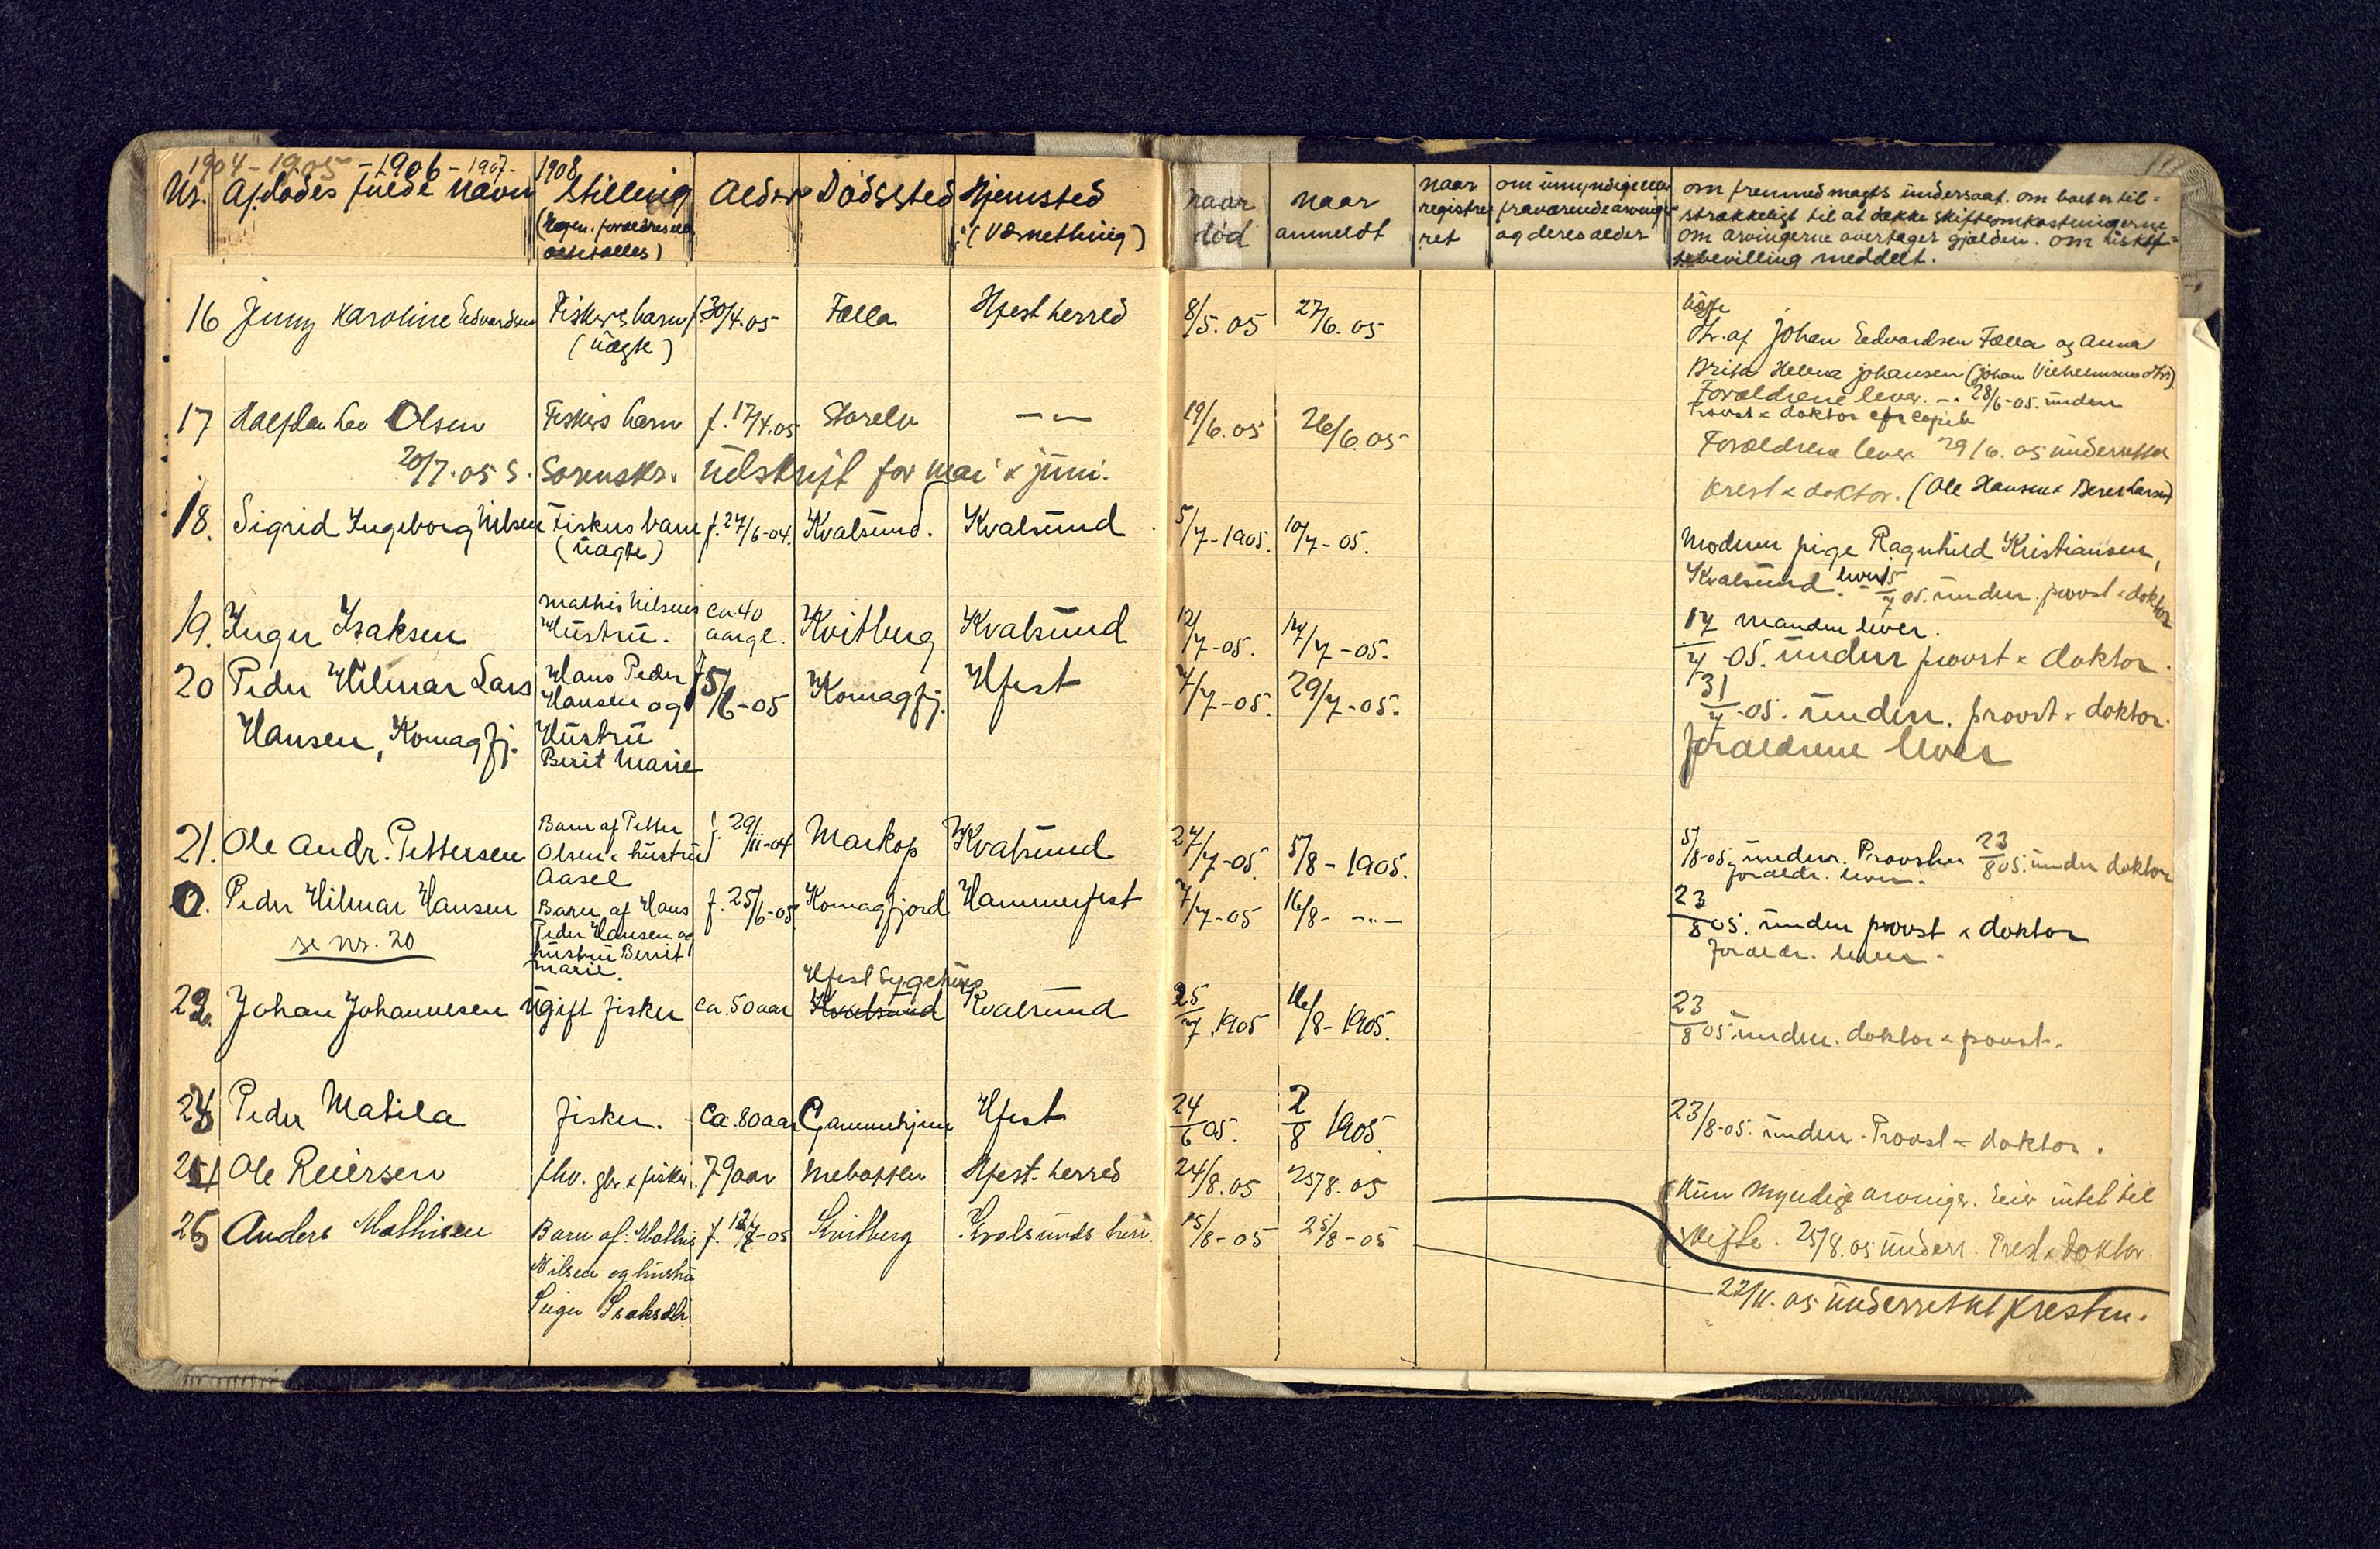 1904-1905-1906-1907-1908
Nr. Afdødes fulde navn Stilling Alder Dödssted Hjemsted naar död naar anmeldt naar registreret om umyndige eller fraværende arvinger og deres alder
(Værnething)
om fremmed magts undersaat. om boet er til=
strækkeligt til at dække skifteomkostningerne
om arvingerne overtager gjælden. om uskif=
tebevilling meddelt.
16 Jenny Karoline Edvardsen Fiskers barn f 30/4.05 Fælla Hfest herred 8/5.05 27/6.05
(uægte)
D*r*. af Johan Edvardsen Fælla og Anna
Brita Helena Johansen (Johan Vilhelmsens dtr)
Forældrene lever. -.. 28/6-05. underr
Provst & doktor
17 Halfdan Leo Olsen Fiskers barn f. 17/4.05 Storelv — — 19/6.05 26/6.05
Forældrene lever 29/6.05 underrettet
prest & doktor. (Ole Hansen & Beret Larsd)
20/7.05 S. Sorenskr. Udskrift for mai & juni.
18. Sigrid Ingeborg Nilsen Fiskers barn f. 27/6-04. Kvalsund. Kvalsund 5/7-1905. 10/7-05.
(uægte)
Moderen pige Ragnhild Kristiansen,
Kvalsund. lever 15/7 05. underr. provst & doktor
19. Inger Isaksen Mathis Nilsens Hustru. ca. 40 aar gl. Kvitberg Kvalsund 12/7-05. 14/7-05.
17 manden lever.
7 -05. underr provst & doktor.
20 Peder Hilmar Lars Hans Peder f 5/6-05 Komagfj. Hfest 7/7-05. 29/7-05.
Hansen, Komagfj. Hansen og
Hustru
Berit Marie
31/7-05. underr. provst & doktor.
forældrene lever
21. Ole Andr. Pettersen Barn af Petter f. 29/11-04 Markop Kvalsund 27/7-05. 5/8-1905.
Olsen & hustru
Aasel
5/8-05 underr. Provsten 23/8 05. underr doktor
forældr. lever.
0. Peder Hilmar Hansen Barn af Hans f. 25/6-05 Komagfjord Hammerfest 7/7-05 16/8- -..-
se nr. 20 Peder Hansen og
hustru Berrit
Marie.
23/8 05. underr provst & doktor
forældr. lever.
Hfest Sygehus
22. Johan Johannesen Ugift fisker ca. 50 aar Kvalsund Kvalsund 25/7 1905 16/8-1905.
23/8 05 underr. doktor & provst.
23 Peder Matila fisker. Ca. 80 aar Gammehjem Hfest 24/6 05. 2/8 1905.
23/8-05. underr. Provst & doktor.
24 Ole Reiersen fhv. gbr. & fisker. 79 aar Mebotten Hfest. herred 24/8.05 25/8.05
Kun myndige arvinger. Eier intet til
skifte. 25/8.05 underr. Prest & Doktor.
25 Anders Mathisen Barn af: Mathis f. 12/7-05 Kvitberg Kvalsunds herr. 15/8-05 25/8-05
Nilsen og hustru
Inger Isaksdtr.
22/11.05 underrettet presten.